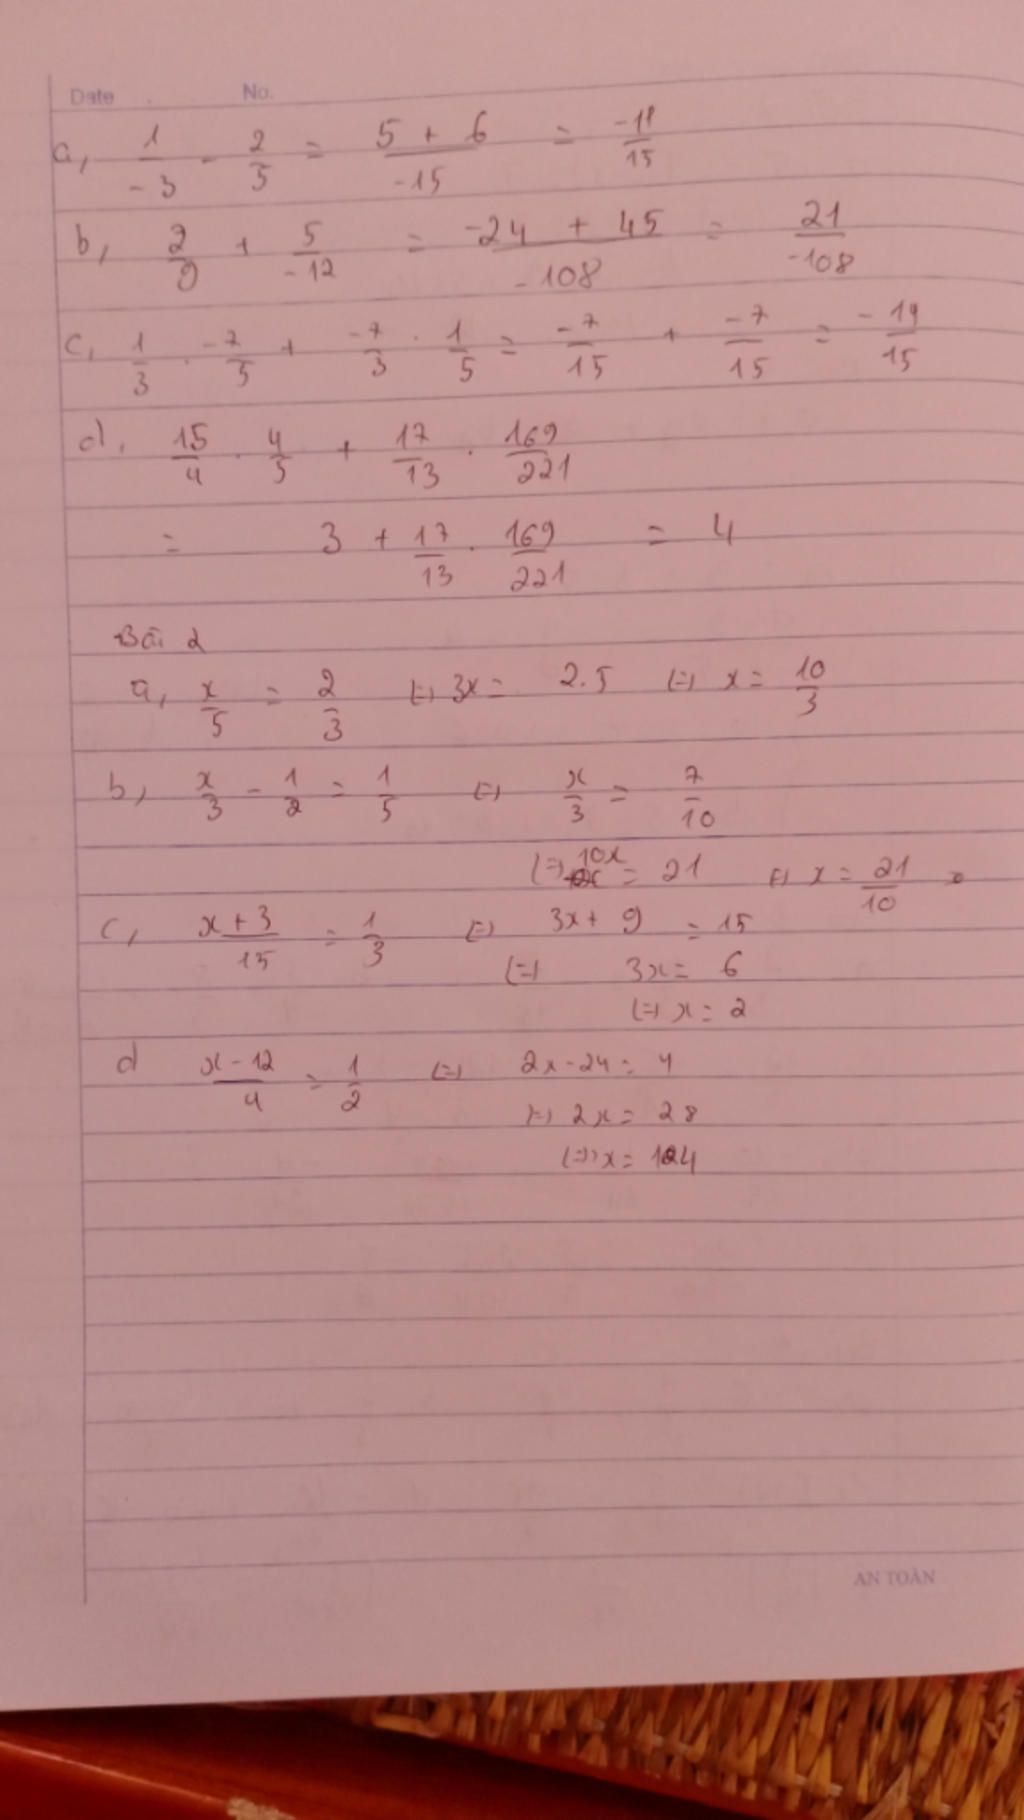 Date No.
a, 1/-3 - 2/5 = (5 + 6)/-15 = -11/15
b, 2/9 + 5/-12 = (-24 + 45)/-108 = 21/-108
c, 1/3 . -7/5 + -7/3 . 1/5 = -7/15 + -7/15 = -14/15
d, 15/4 . 4/5 + 17/13 . 169/221
= 3 + 17/13 . 169/221 = 4
Bài 2
a, x/5 = 2/3 (=) 3x = 2.5 (=) x = 10/3
b, x/3 - 1/2 = 1/5 (=) x/3 = 7/10
(=) 10x = 21 (=) x = 21/10
c, (x + 3)/15 = 1/3 (=) 3x + 9 = 15
(=) 3x = 6
(=) x = 2
d (x - 12)/4 = 1/2 (=) 2x - 24 = 4
(=) 2x = 28
(=) x =
AN TOÀN